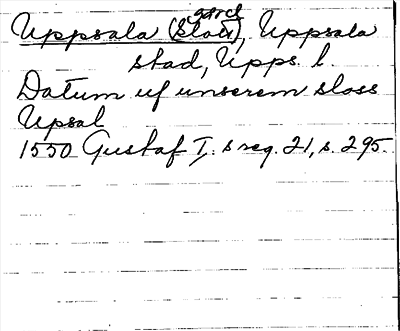 Uppsala (slott), Uppsala
stad, Upps. l.
Datum uf unserem sloss
Upsal
1550 Gustaf I:s reg. 21, s. 295.